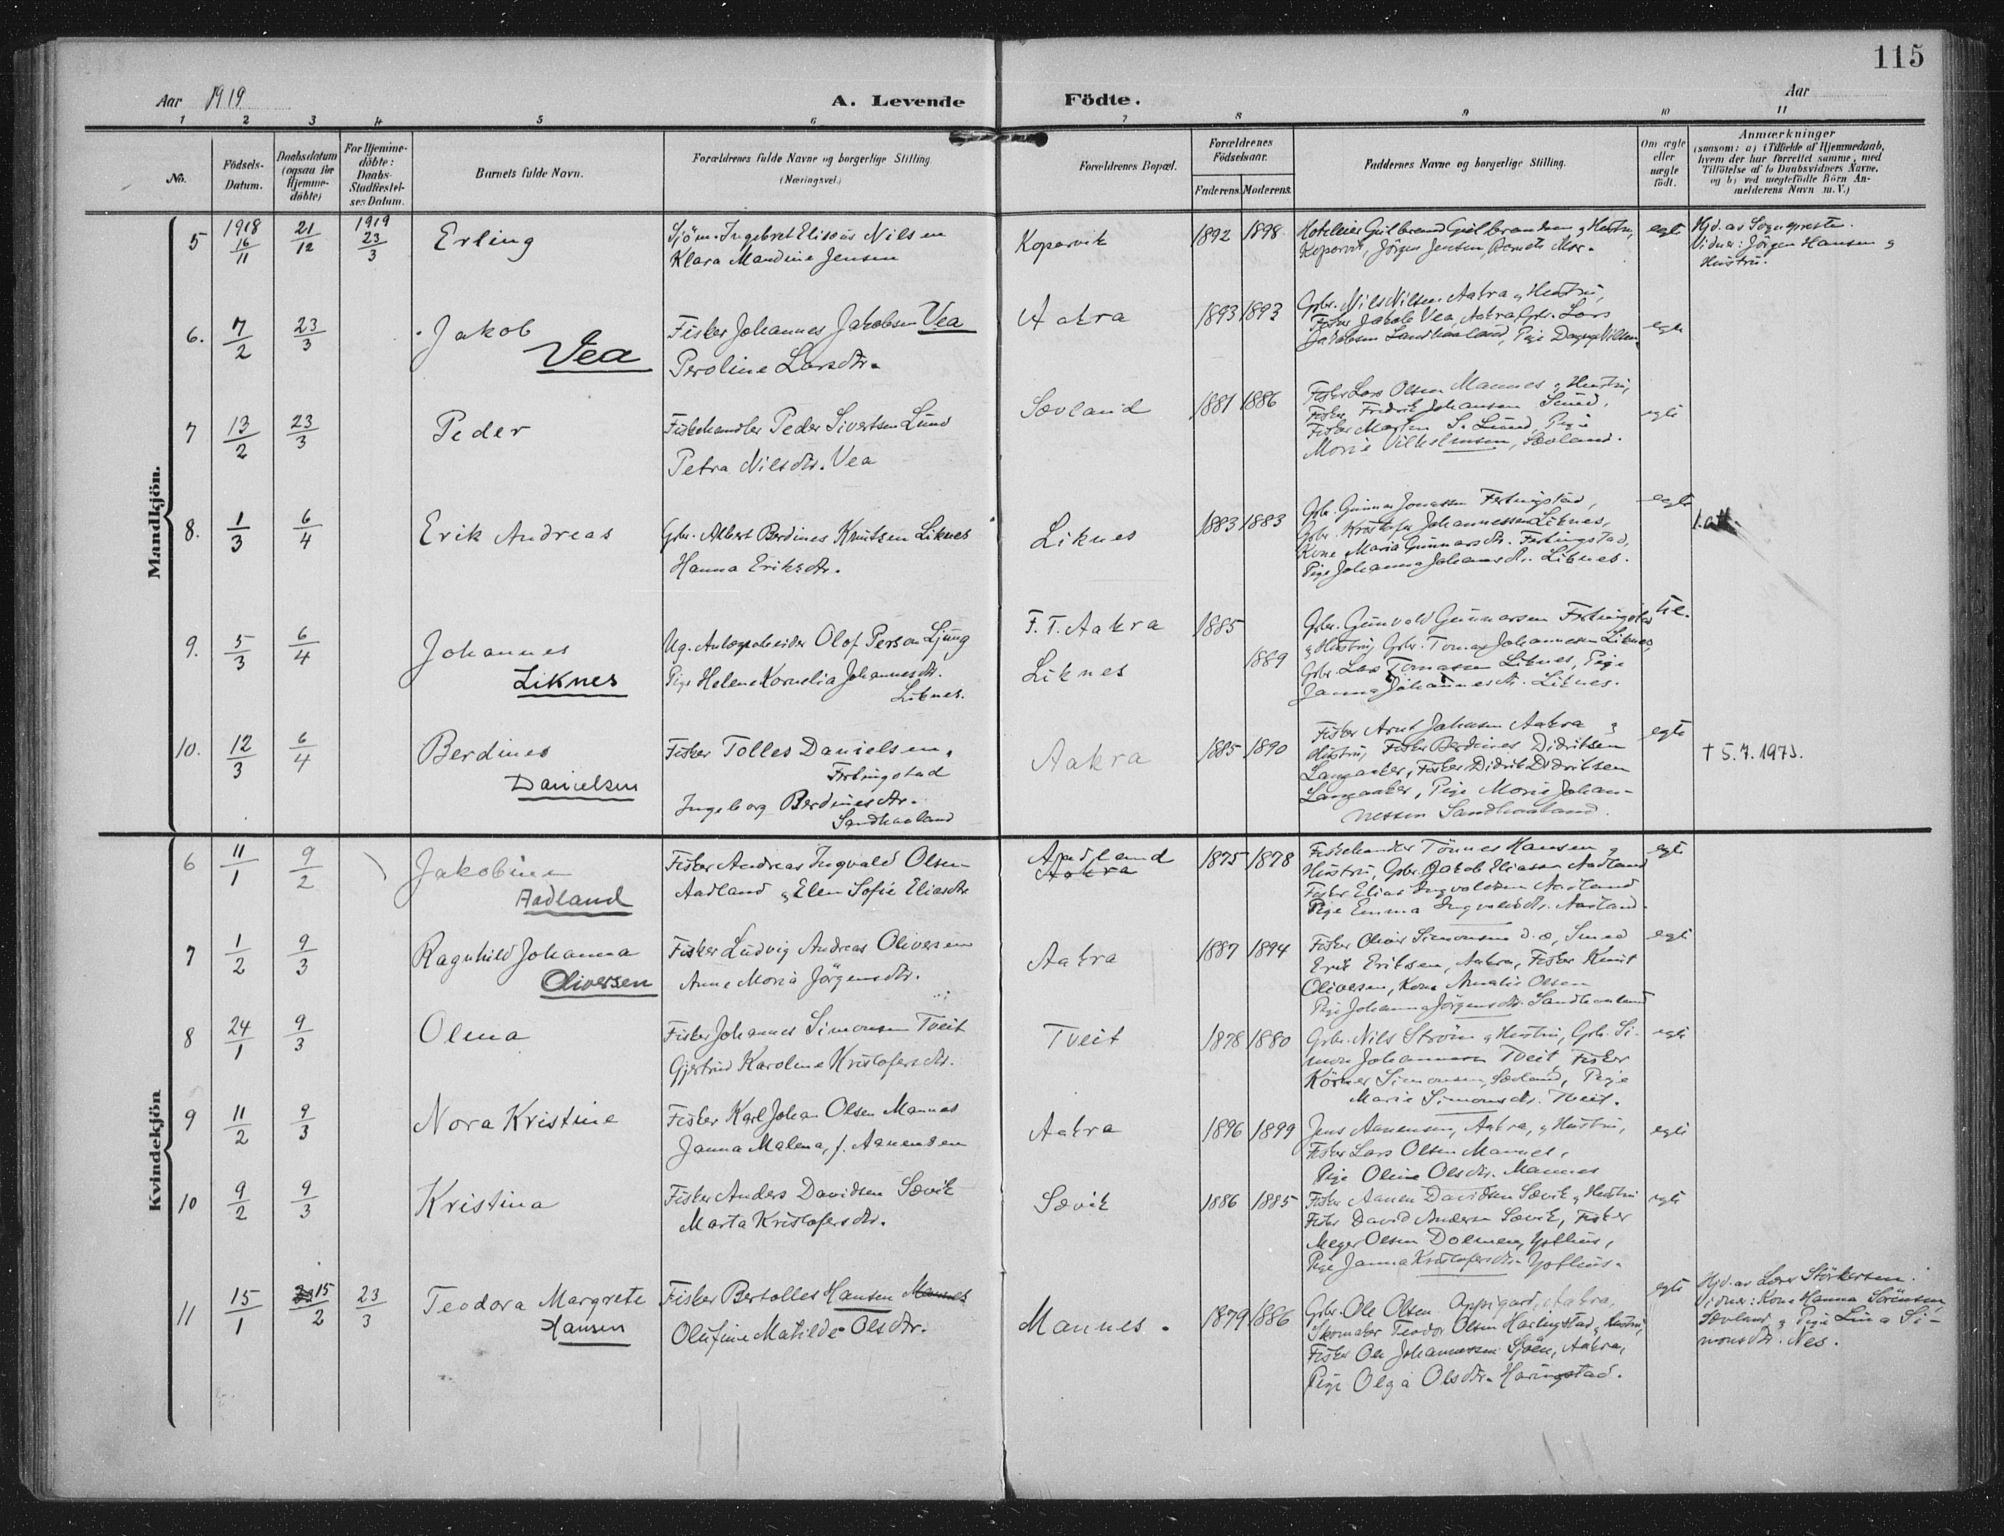 115
Aar 1919
A. Levende
Födte.
Aar
1 2 3 4 5 6 7 8 9 10 11
No.
Födsels-
Datum.
Daabsdatum
(ogsaa for
Hjemme-
döbte)
For Hjemme-
döbte:
Daabs-
Stadfæstel-
ses Datum.
Barnets fulde Navn.
Forældrenes fulde Navne og borgerlige Stilling.
(Næringsvei.)
Forældrenes Bopæl.
Forældrenes
Födselsaar.
Faderens. Moderens.
Faddernes Navne og borgerlige Stilling.
Om ægte
eller
uægte
födt.
Anmærkninger
(saasom: a) i Tilfælde af Hjemmedaab,
hvem der har forrettet samme, med
Tilföielse af to Daabsvidners Navne,
og b) ved uægtefödte Börn An-
melderens Navn m. V.)
Mandkjön.
5 1918 16/11 21/12 1919 23/3 Erling
Sjöm. Ingebret Elisæus Nilsen
Klara Mandine Jensen
Kopervik 1892 1898
Hoteleier Gulbrand Gulbrandsen & Hustru,
Kopervik, Jörgen Jensen, Barnets Mor.
egte
Hjd. av Sogneprest.
Vidner: Jörgen Hansen &
Hustru.
6. 7/2 23/3 Jakob
Vea
Fisker Johannes Jakobsen Vea
Peroline Larsdtr.
Aakra 1893 1893
Gbr. Nils Nilsen Aakra & Hustru,
Fisker Jakob Vea, Aakra, Gbr. Lars
Jakobsen Sandhaaland, Pige Dagny Nilsen
egte
7 13/2 23/3 Peder
Fiskehandler Peder Sivertsen Lund
Petra Nilsdtr. Vea
Sævland 1881 1886
Fisker Lars Olsen Mannes & Hustru,
Fisker Fredrik Johansen Smed,
Fisker Marten S. Lund, Pige
Marie Vilhelmsen, Sævland.
egte
8. 1/3 6/4 Erik Andreas
Gbr. Albert Berdines Knutsen Liknes
Hanna Eriksdtr.
Liknes 1883 1883
Gbr. Gunnar Jonassen Ferkingstad,
Gbr. Kristofer Johannessen Liknes,
Kone Maria Gunnarsdtr. Ferkingstad,
Pige Johanna Johansdtr. Liknes.
egte
1. att.
9. 5/3 6/4 Johannes
Liknes
Ug. Olof Person Ljung
Pige Helene Kornelia Johannesdtr.
Liknes.
F. T. Aakra 1885
Liknes 1889
Gbr. Gunvald Gunnarsen Ferkingstad
& Hustru, Gbr. Tomas Johannesen Liknes,
Gbr. Lars Tomassen Liknes, Pige
Janna Johannesdtr. Liknes.
10. 12/3 6/4 Berdines
Danielsen
Fisker Tolles Danielsen,
Ferkingstad
Ingeborg Berdinesdtr.
Sandhaaland
Aakra 1885 1890
Fisker Arnt Johnsen Aakra &
Hustru, Fisker Berdines Didriksen
Langaaker, Fisker Didrik Didriksen
Langaaker, Pige Marie Johan-
nessen Sandhaaland.
egte
† 5.7.1973.
Kvindekjön
6 11/1 9/2 Jakobine
Aadland
Fisker Andreas Ingvald Olsen
Aadland & Elen Sofie Eliasdtr
Aadland
Aakra 1875 1878
Fiskehandler Tönnes Hansen &
Hustru, Gbr. Jakob Eliassen Aadland
Fisker Elias Ingvaldsen Aadland
Pige Emma Ingvaldsdtr. Aadland.
egte
7 1/2 9/3 Ragnhild Johanna
Oliversen
Fisker Ludvig Andreas Oliversen
Anne Maria Jörgensdtr.
Aakra 1887 1894
Fisker Oliver Simonsen d.æ, Smed
Erik Eriksen, Aakra, Fisker Knut
Oliversen, Kone Amalie Olsen
Pige Johanna Jörgensdtr. Sandhaaland
egte
8 24/1 9/3 Olena
Fisker Johannes Simonsen Tveit
Gjertrud Karoline Kristofersdtr.
Tveit 1878 1880
Gbr. Nils Ström & Hustru, Gbr. Si-
mon Johannesen Tveit, Fisker
Körner Simonsen, Sævland, Pige
Marie Simonsdtr. Tveit.
egte
9 11/2 9/3 Nora Kristine
Fisker Karl Johan Olsen Mannes
Janna Malena, f. Aanensen
Aakra 1896 1899
Jens Aanensen, Aakra, & Hustru,
Fisker Lars Olsen Mannes,
Pige Oline Olsdtr. Mannes
egte
10 9/2 9/3 Kristina
Fisker Anders Davidsen Sævik
Marta Kristofersdtr.
Sævik 1886 1885
Fisker Aanen Davidsen Sævik & Hustru
Fisker David Andersen Sævik, Fisker
Meyer Olsen Dolmen,
Pige Janna Kristofersdtr.
egte
11 15/1 15/2 23/3 Teodora Margrete
Hansen
Fisker Bertolles Hansen Mannes
Olufine Matilde Olsdtr.
Mannes. 1879 1886
Gbr. Ole Olsen Aakra,
Skomaker Teodor Olsen Haringstad & Hustru,
Fisker Ole Johannessen Sjöen, Aakra,
Pige Olga Olsdtr. Haringstad.
egte
Hjd. av Lærer Störkersen.
Vidner: Kone Hanna Sörensen,
Sævland, & Pige Lina Si-
monsdtr. Nes.